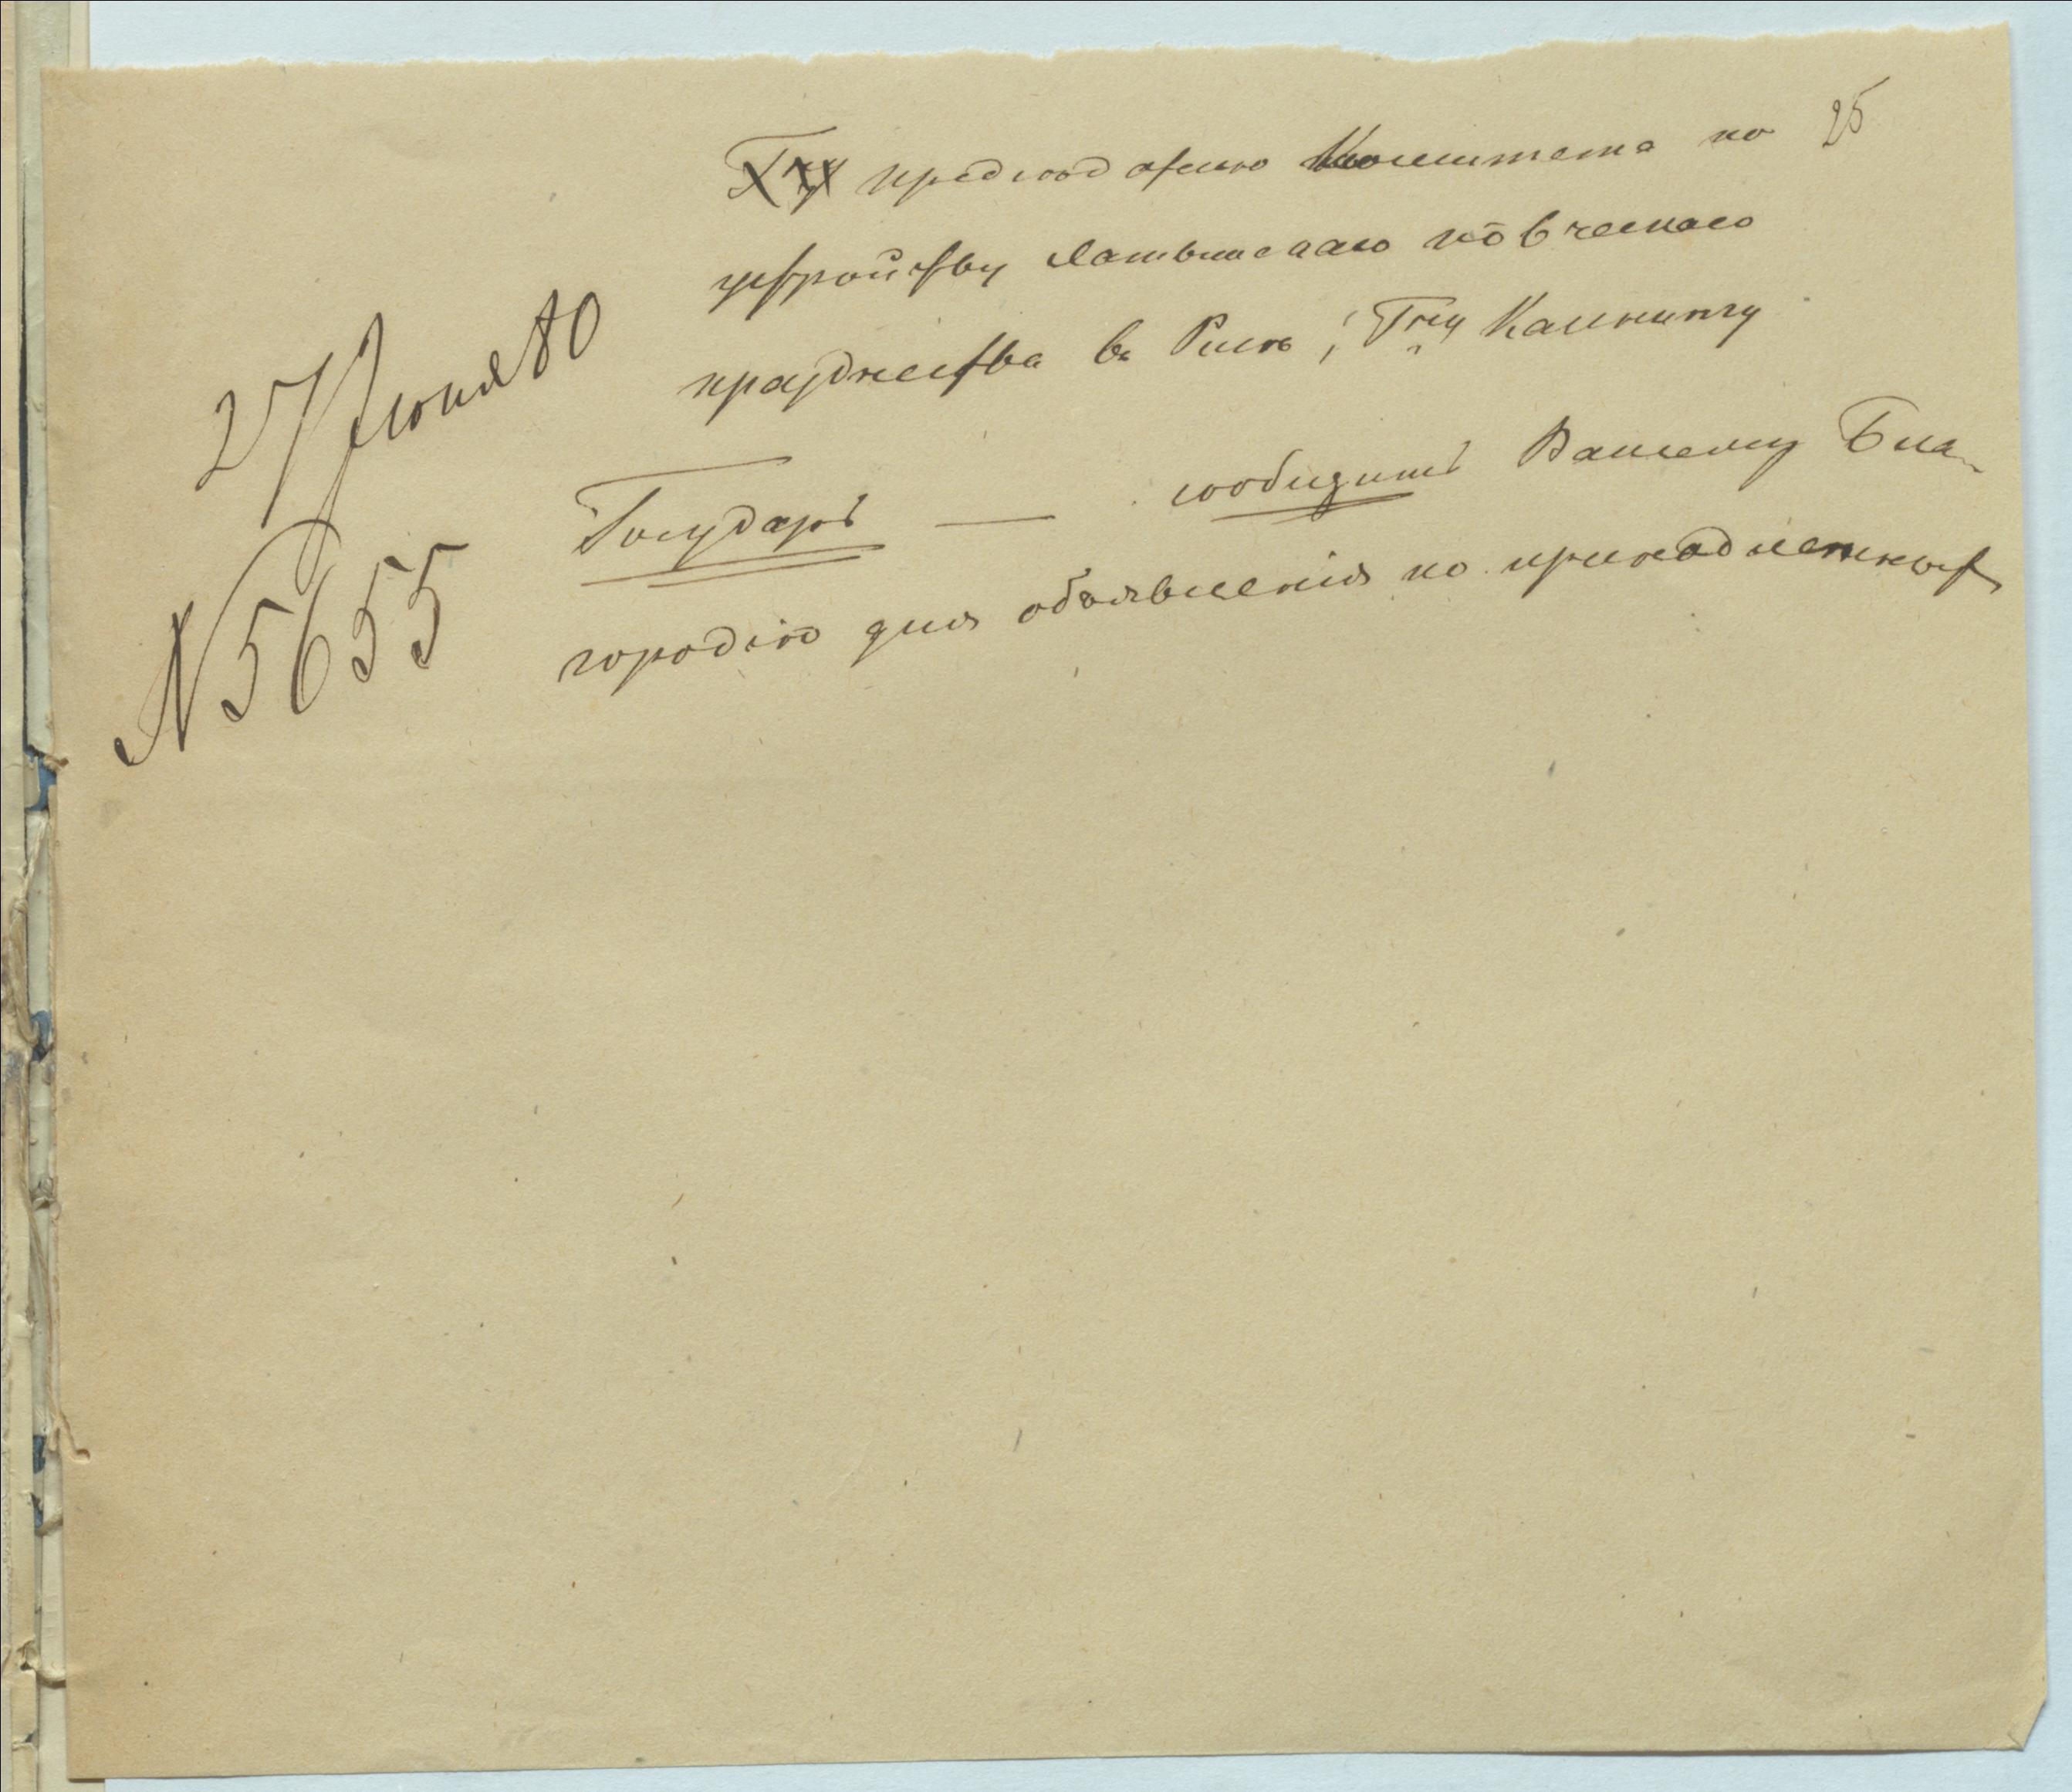 25
Гну председателю Комитета по
устройству Латышскаго пѣвческаго
празднества въ Ригѣ, Гну Калнингу
27 Іюня 80
№ 5655
Государь — сообщить Вашему Бла-
городію для объявленія по принадлежност